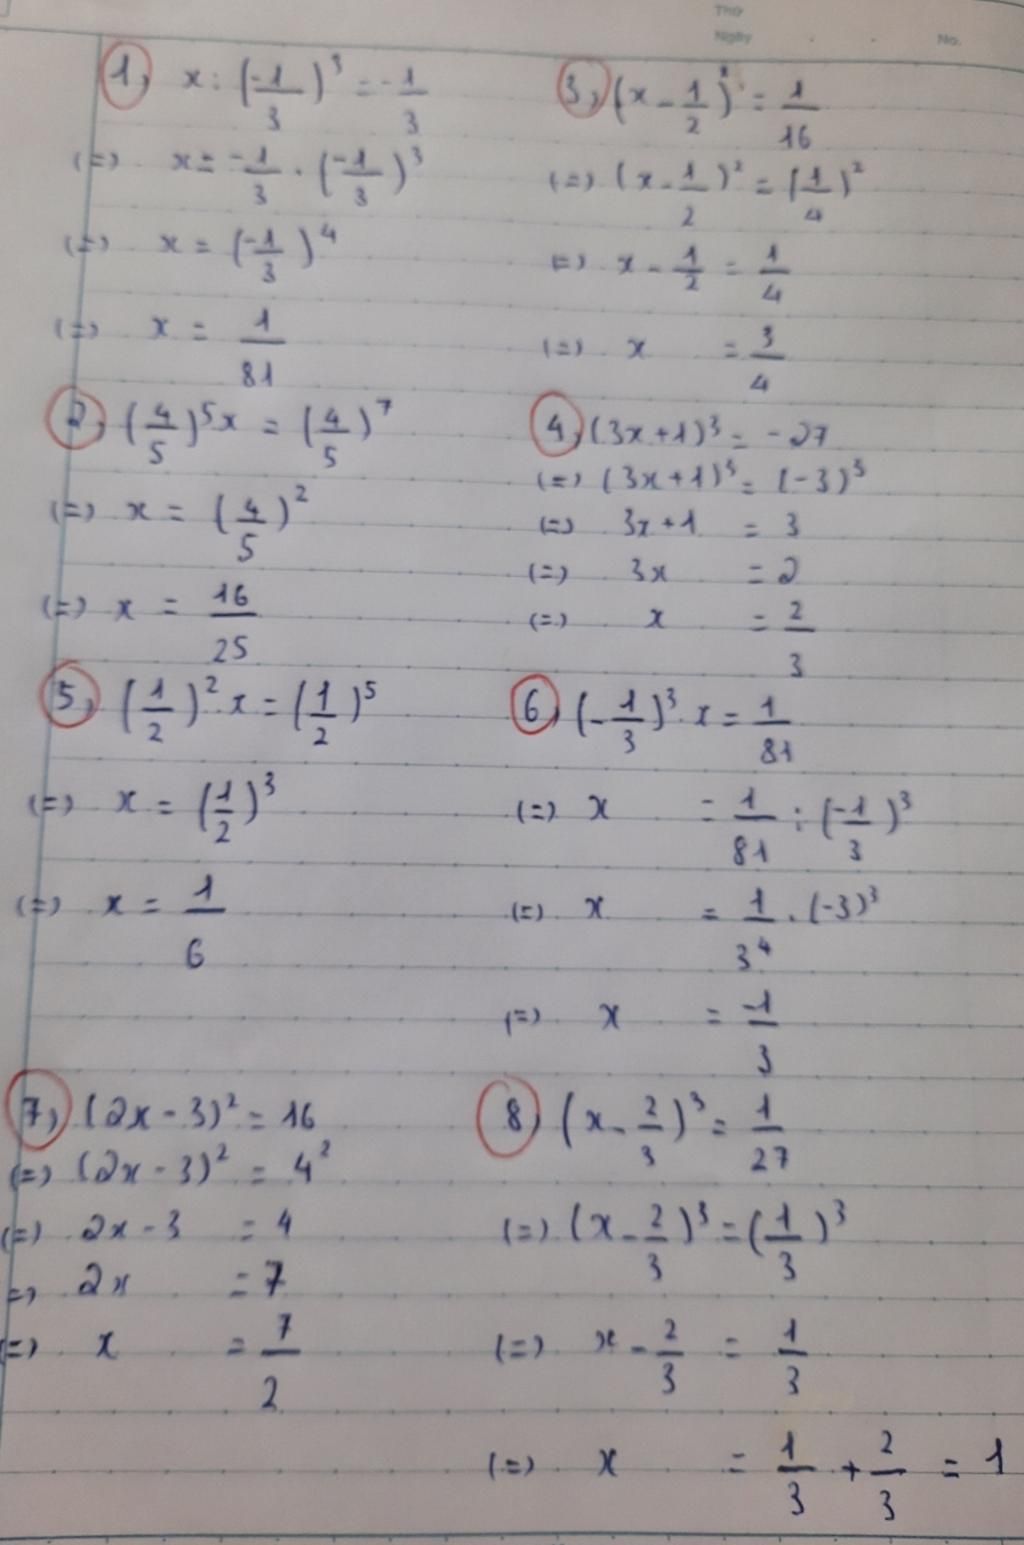 Thứ
Ngày . . No.
1, x : (-1/3)^3 = -1/3
(=) x = -1/3 . (-1/3)^3
(=) x = (-1/3)^4
(=) x = 1/81
2, (4/5)^5 x = (4/5)^7
(=) x = (4/5)^2
(=) x = 16/25
3, (x - 1/2)^2 = 1/16
(=) (x - 1/2)^2 = (1/4)^2
(=) x - 1/2 = 1/4
(=) x = 3/4
4, (3x+1)^3 = -27
(=) (3x+1)^3 = (-3)^3
(=) 3x+1 = 3
(=) 3x = 2
(=) x = 2/3
5, (1/2)^2 x = (1/2)^5
(=) x = (1/2)^3
(=) x = 1/6
6, (-1/3)^3 . x = 1/81
(=) x = 1/81 : (-1/3)^3
(=) x = 1/3^4 . (-3)^3
(=) x = -1/3
7, (2x - 3)^2 = 16
(=) (2x - 3)^2 = 4^2
(=) 2x - 3 = 4
=) 2x = 7
(=) x = 7/2
8, (x - 2/3)^3 = 1/27
(=) (x - 2/3)^3 = (1/3)^3
(=) x - 2/3 = 1/3
(=) x = 1/3 + 2/3 = 1